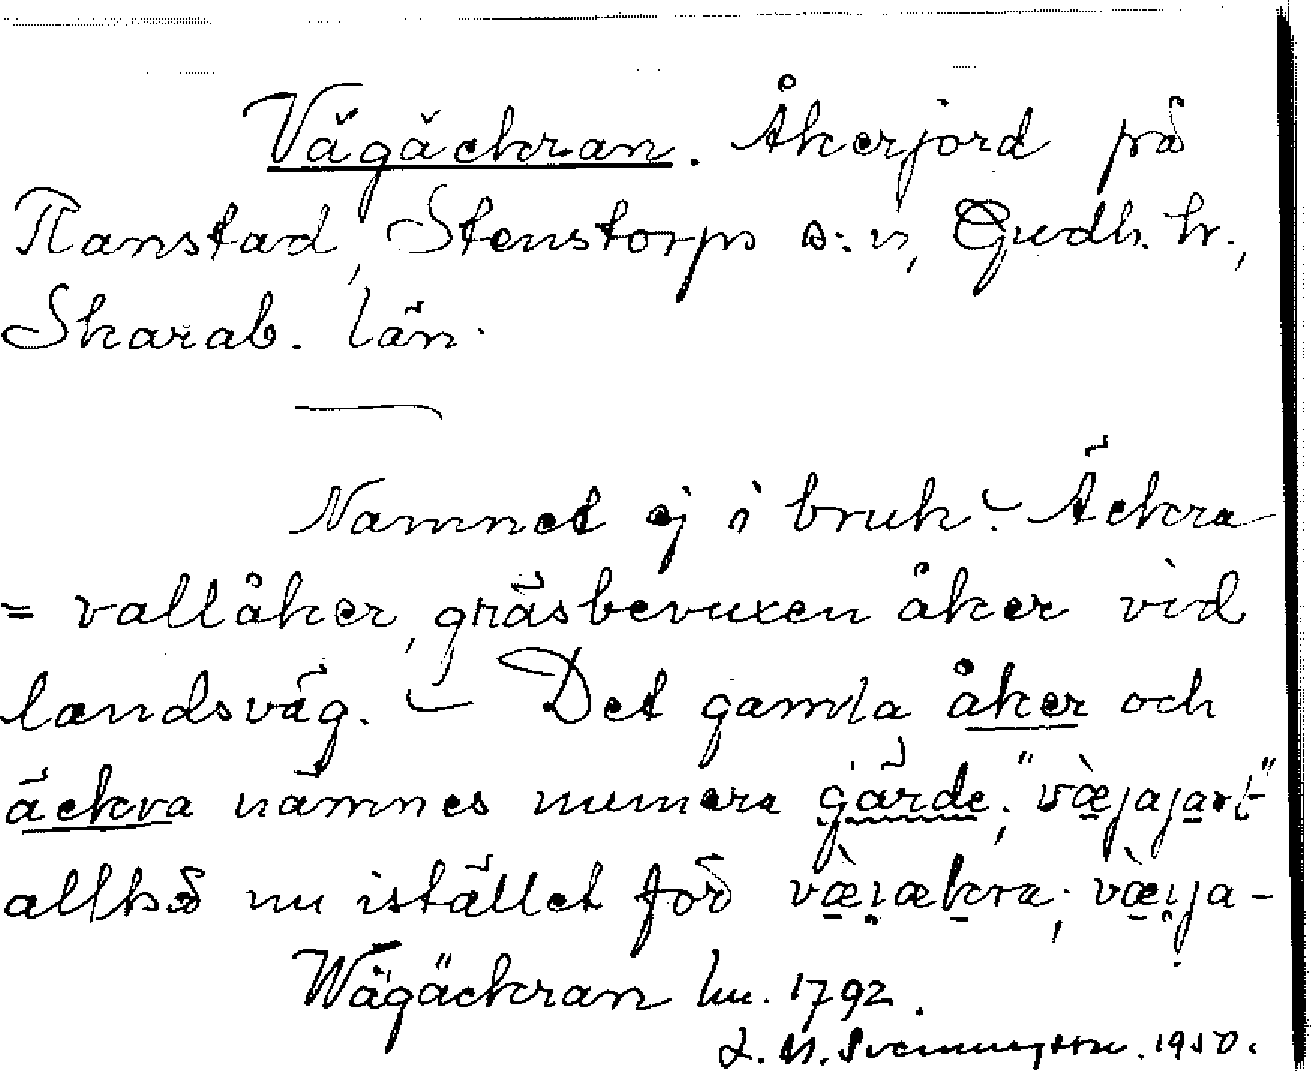 Vägäckran. Åkerjord på
Ranstad, Stenstorps s:n, Gudh. hr.,
Skarab. län.
Namnet ej i bruk. – Äckra
= vallåker, gräsbevuxen åker vid
landsväg. – Det gamla åker och
äckra nämnes numera gärde; "vàjajart"
alltså nu istället för væ̀ıækra; væ̀ıja-
Wägäckran hu. 1792.
L. M. Svenungsson. 1950.